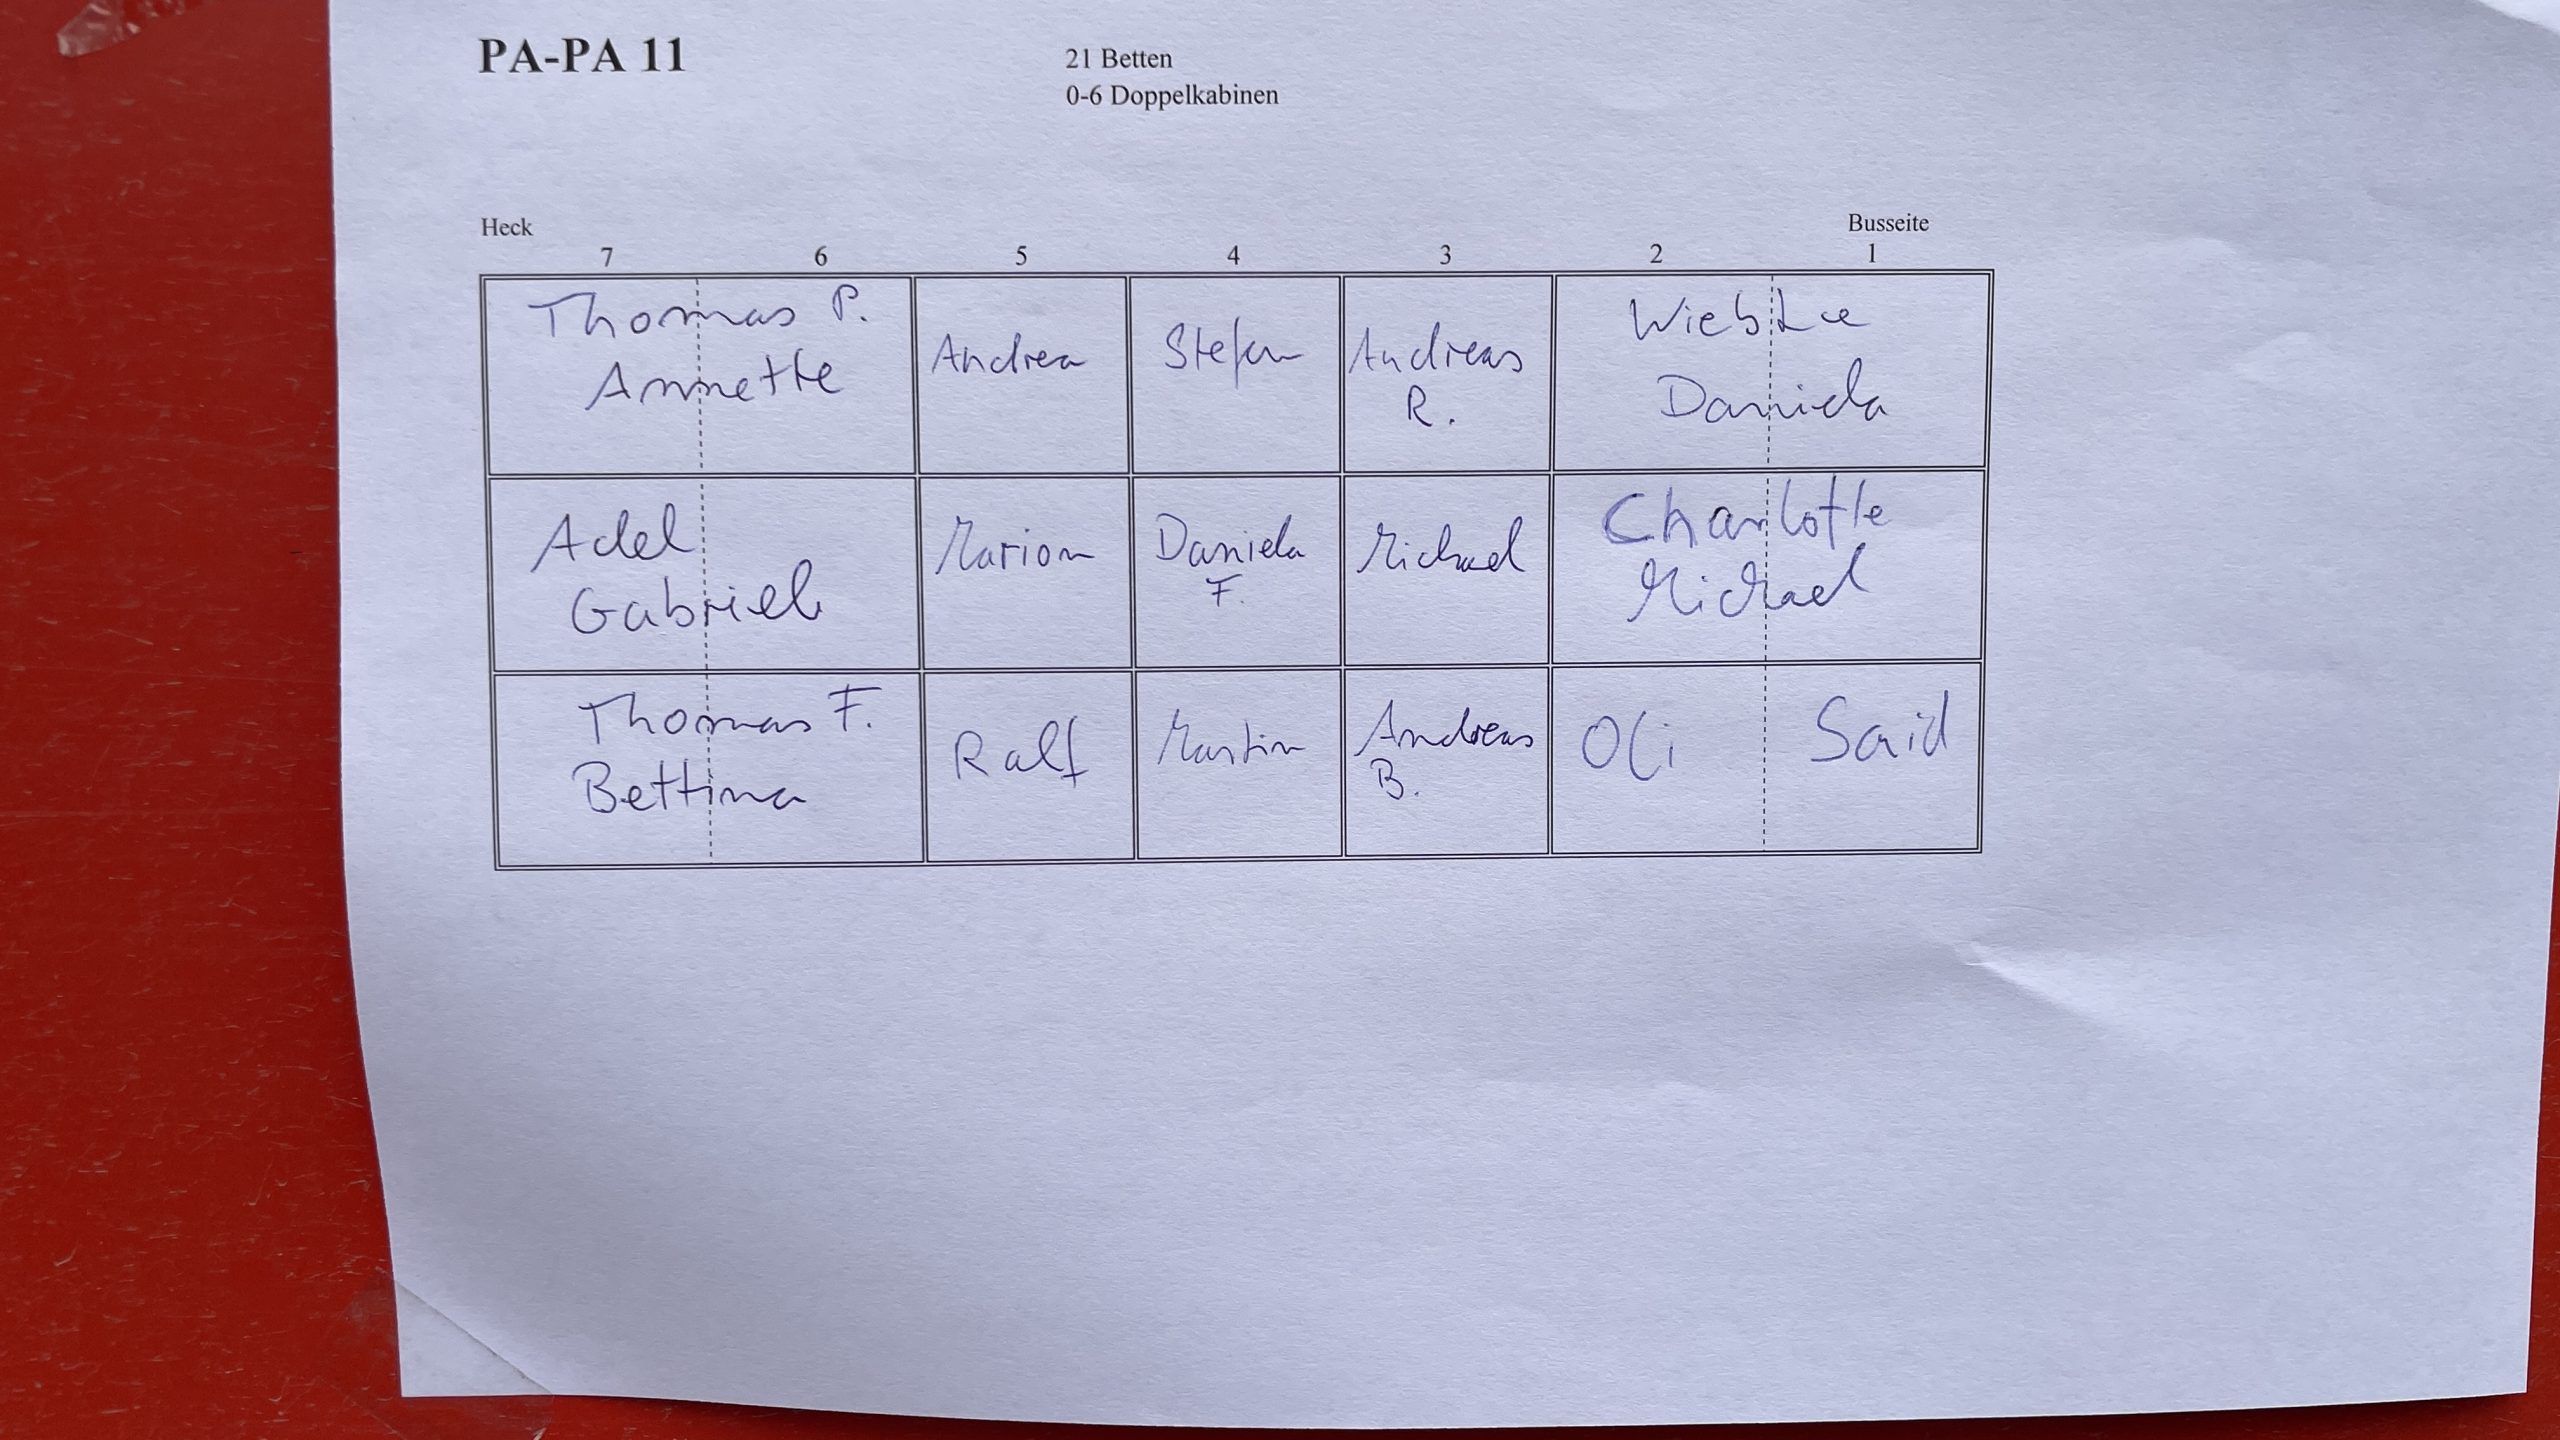 PA-PA 11
21 Betten
0-6 Doppelkabinen
Heck
Busseite
7 6 5 4 3 2 1
Thomas P.
Annette
Andrea
Stefan
Andreas
R.
Wiebke
Daniela
Adel
Gabriel
Marion
Daniela
F.
Michael
Charlotte
Michael
Thomas F.
Bettina
Ralf
Martin
Andreas
B.
Oli
Said